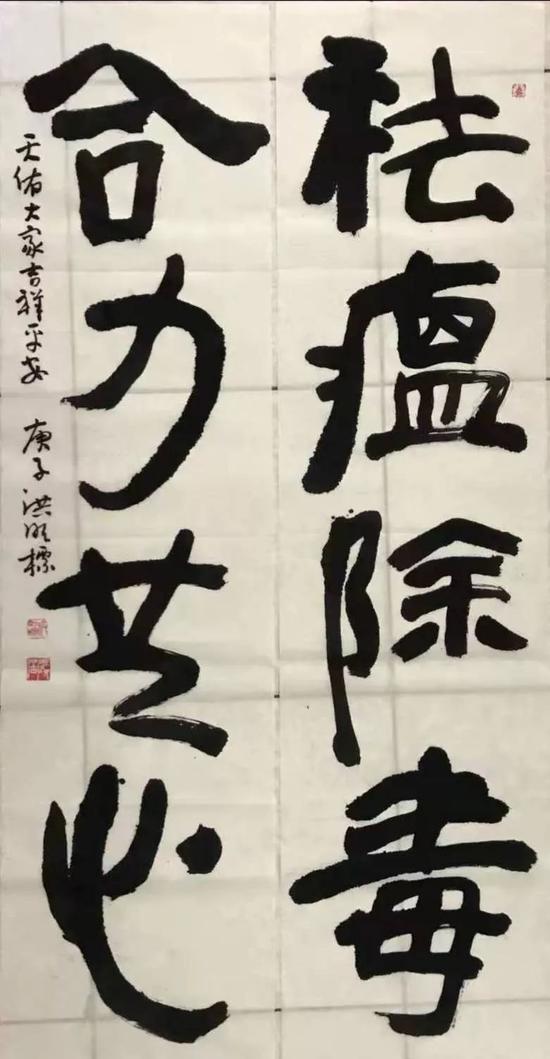 祛瘟除毒
合力共心
天佑大家吉祥平安 庚子 洪明标